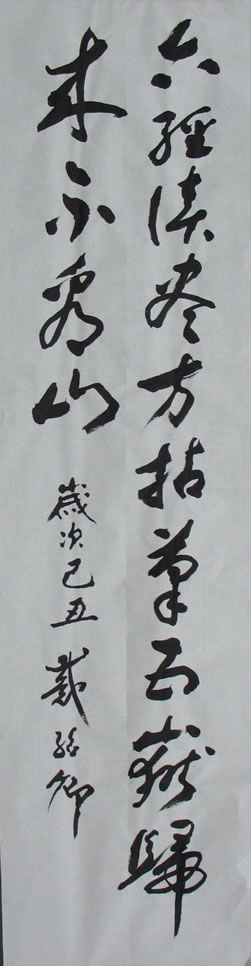 六經讀盡方拈筆五嶽歸
来不看山
歲次己丑 戴卿